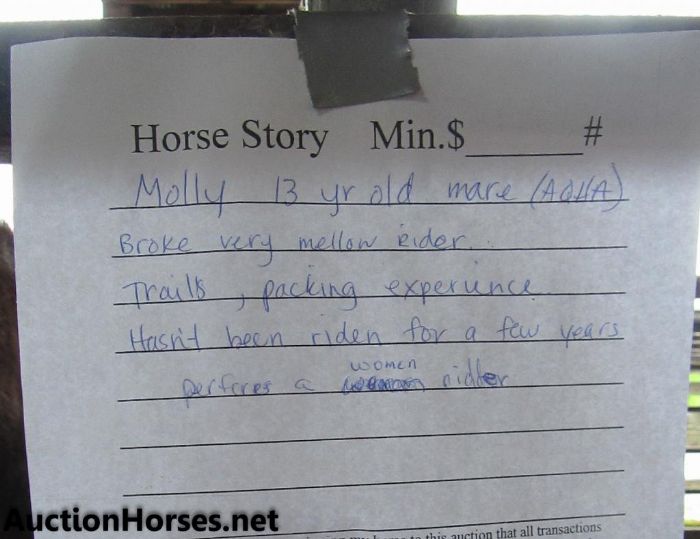 Horse Story Min.$______#
Molly 13 yr old mare (AQHA)
Broke very mellow Rider.
Trails, packing experience
Hasn't been riden for a few years
women
perferes a ridder
to this auction that all transactions
AuctionHorses.net